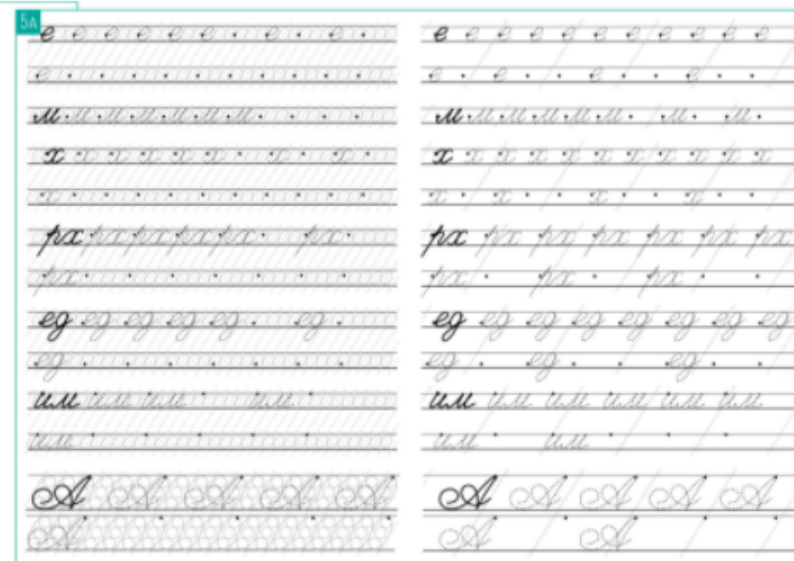 5А
е е е е е е е е
е
м м м м м м м
х х х х х х х х
х
рх рх рх рх рх рх
рх
ед ед ед ед ед ед
ед
им им им им
им
А А А А А
А
е е е е е е е е е е е
е е е е
м м м м м м м м
х х х х х х х х х х х
х х х х
рх рх рх рх рх рх рх
рх рх рх
ед ед ед ед ед ед ед ед
ед ед ед
им им им им им им
им им
А А А А А
А А